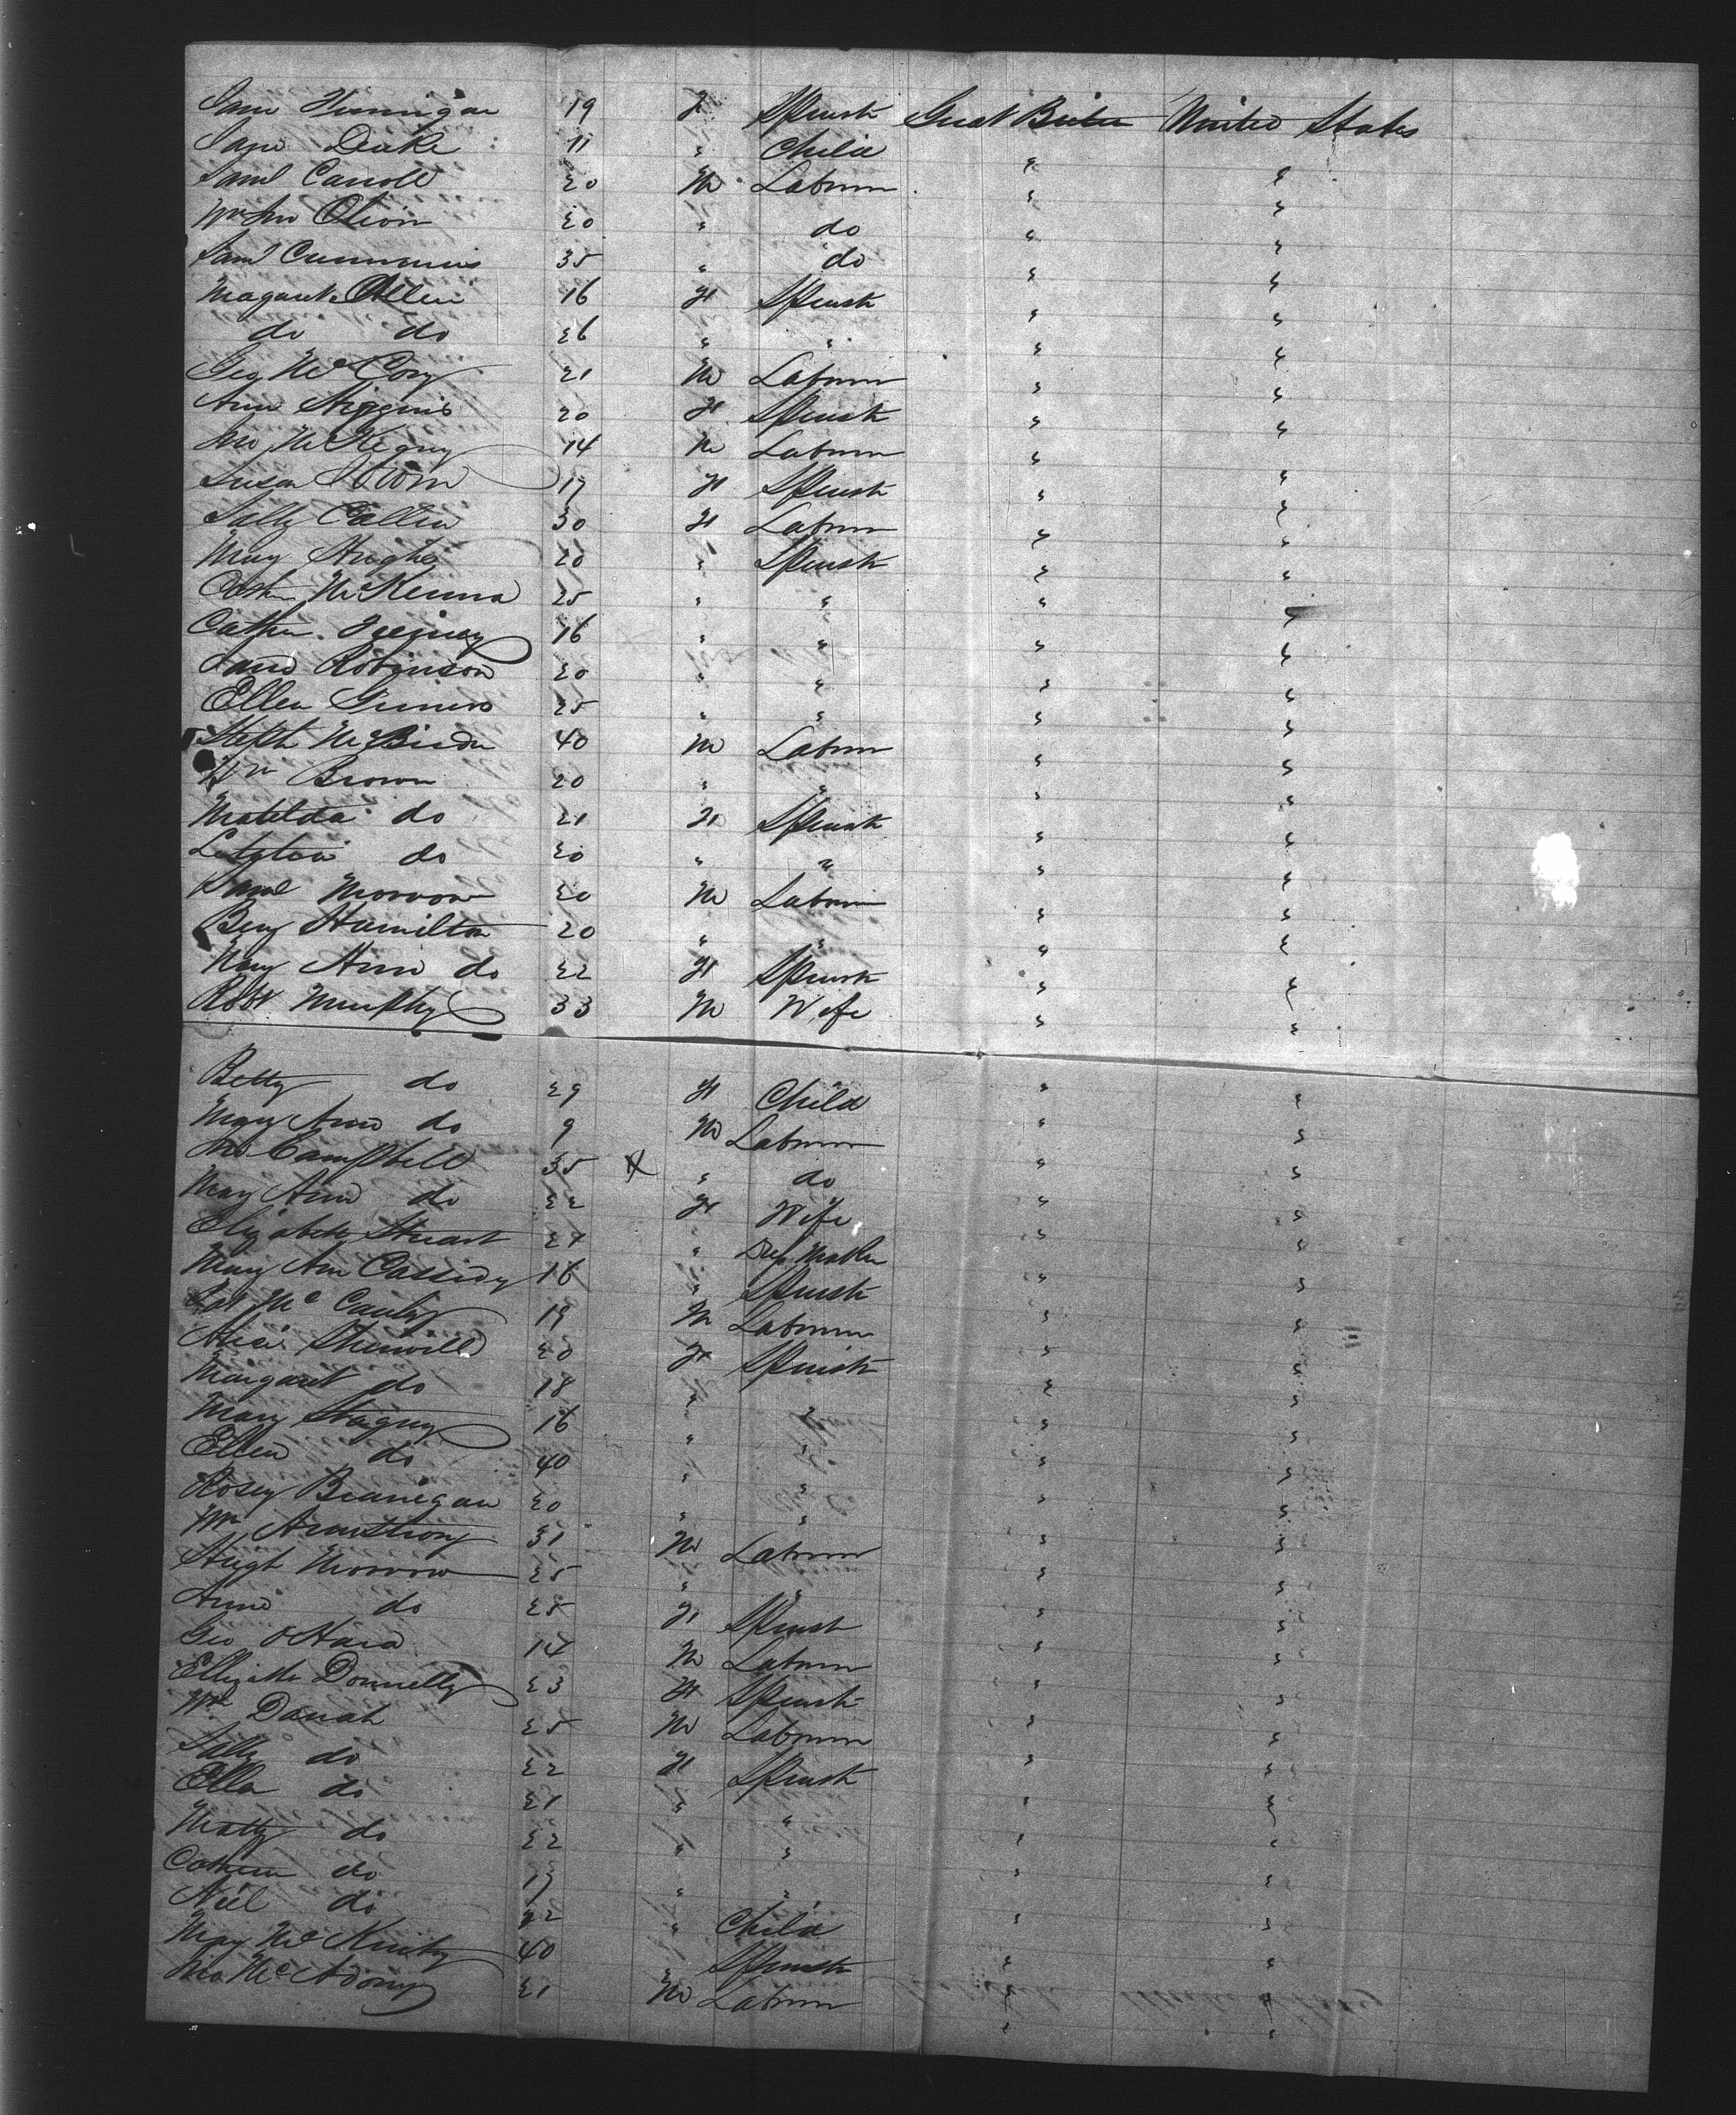 Jane 19 F. Spinstr Great Britn United States
Jane Drake 11 " Child " "
Saml Carroll 20 M Labourer " "
Wm Jno 20 " do " "
Saml Cummins 35 " do " "
Magaret Allen 16 F Spinstr " "
do do 26 " " " "
Geo McCory 21 M Labourer " "
Ann Higgins 20 F Spinstr " "
Jno 14 M Labourer " "
Susan 19 F Spinstr " "
Sally 30 F Labourer " "
Mary Hughes 20 " Spinstr " "
Cath McKenna 25 " " " "
Cathn. Feeney 16 " " " "
Jane Robinson 20 " " " "
Ellen 25 " " " "
Steph McBirdn 40 M Labourer " "
Wm Brown 20 " " " "
Matilda do 21 F Spinstr " "
Letitia do 20 " " " "
Saml Morrow 20 M Labourer " "
Benj Hamilton 20 " " " "
Mary Ann do 22 F Spinstr " "
Robt Murphy 33 M Wife " "
Betty do 29 F Child " "
Mary Ann do 9 M Labourer " "
Jno Campbell 35 X " do " "
Mary Ann do 22 F Wife " "
Elizabeth Stuart 21 " Maker " "
Mary Ann Cassidy 16 " Spinstr " "
Pat Mc Cauly 19 M Labourer " "
Alice 20 F Spinstr " "
Margaret do 18 " " " "
Mary 16 " " " "
Ellen do 40 " " " "
Rosey Branigan 20 " " " "
Wm Armstrong 31 M Labourer " "
Hugh Morrow 25 " " " "
Anne do 25 F Spinstr " "
Geo O'Hara 14 M Labourer " "
Elizabth Donnelly 23 F Spinstr " "
Wm Darrah 25 M Labourer " "
Sally do 22 F Spinstr " "
Ella do 21 " " " "
Matty do 22 " " " "
Cathern do 19 " " " "
Niel do 22 " Child " "
Mary 40 " Spinstr " "
21 M Labourer " "